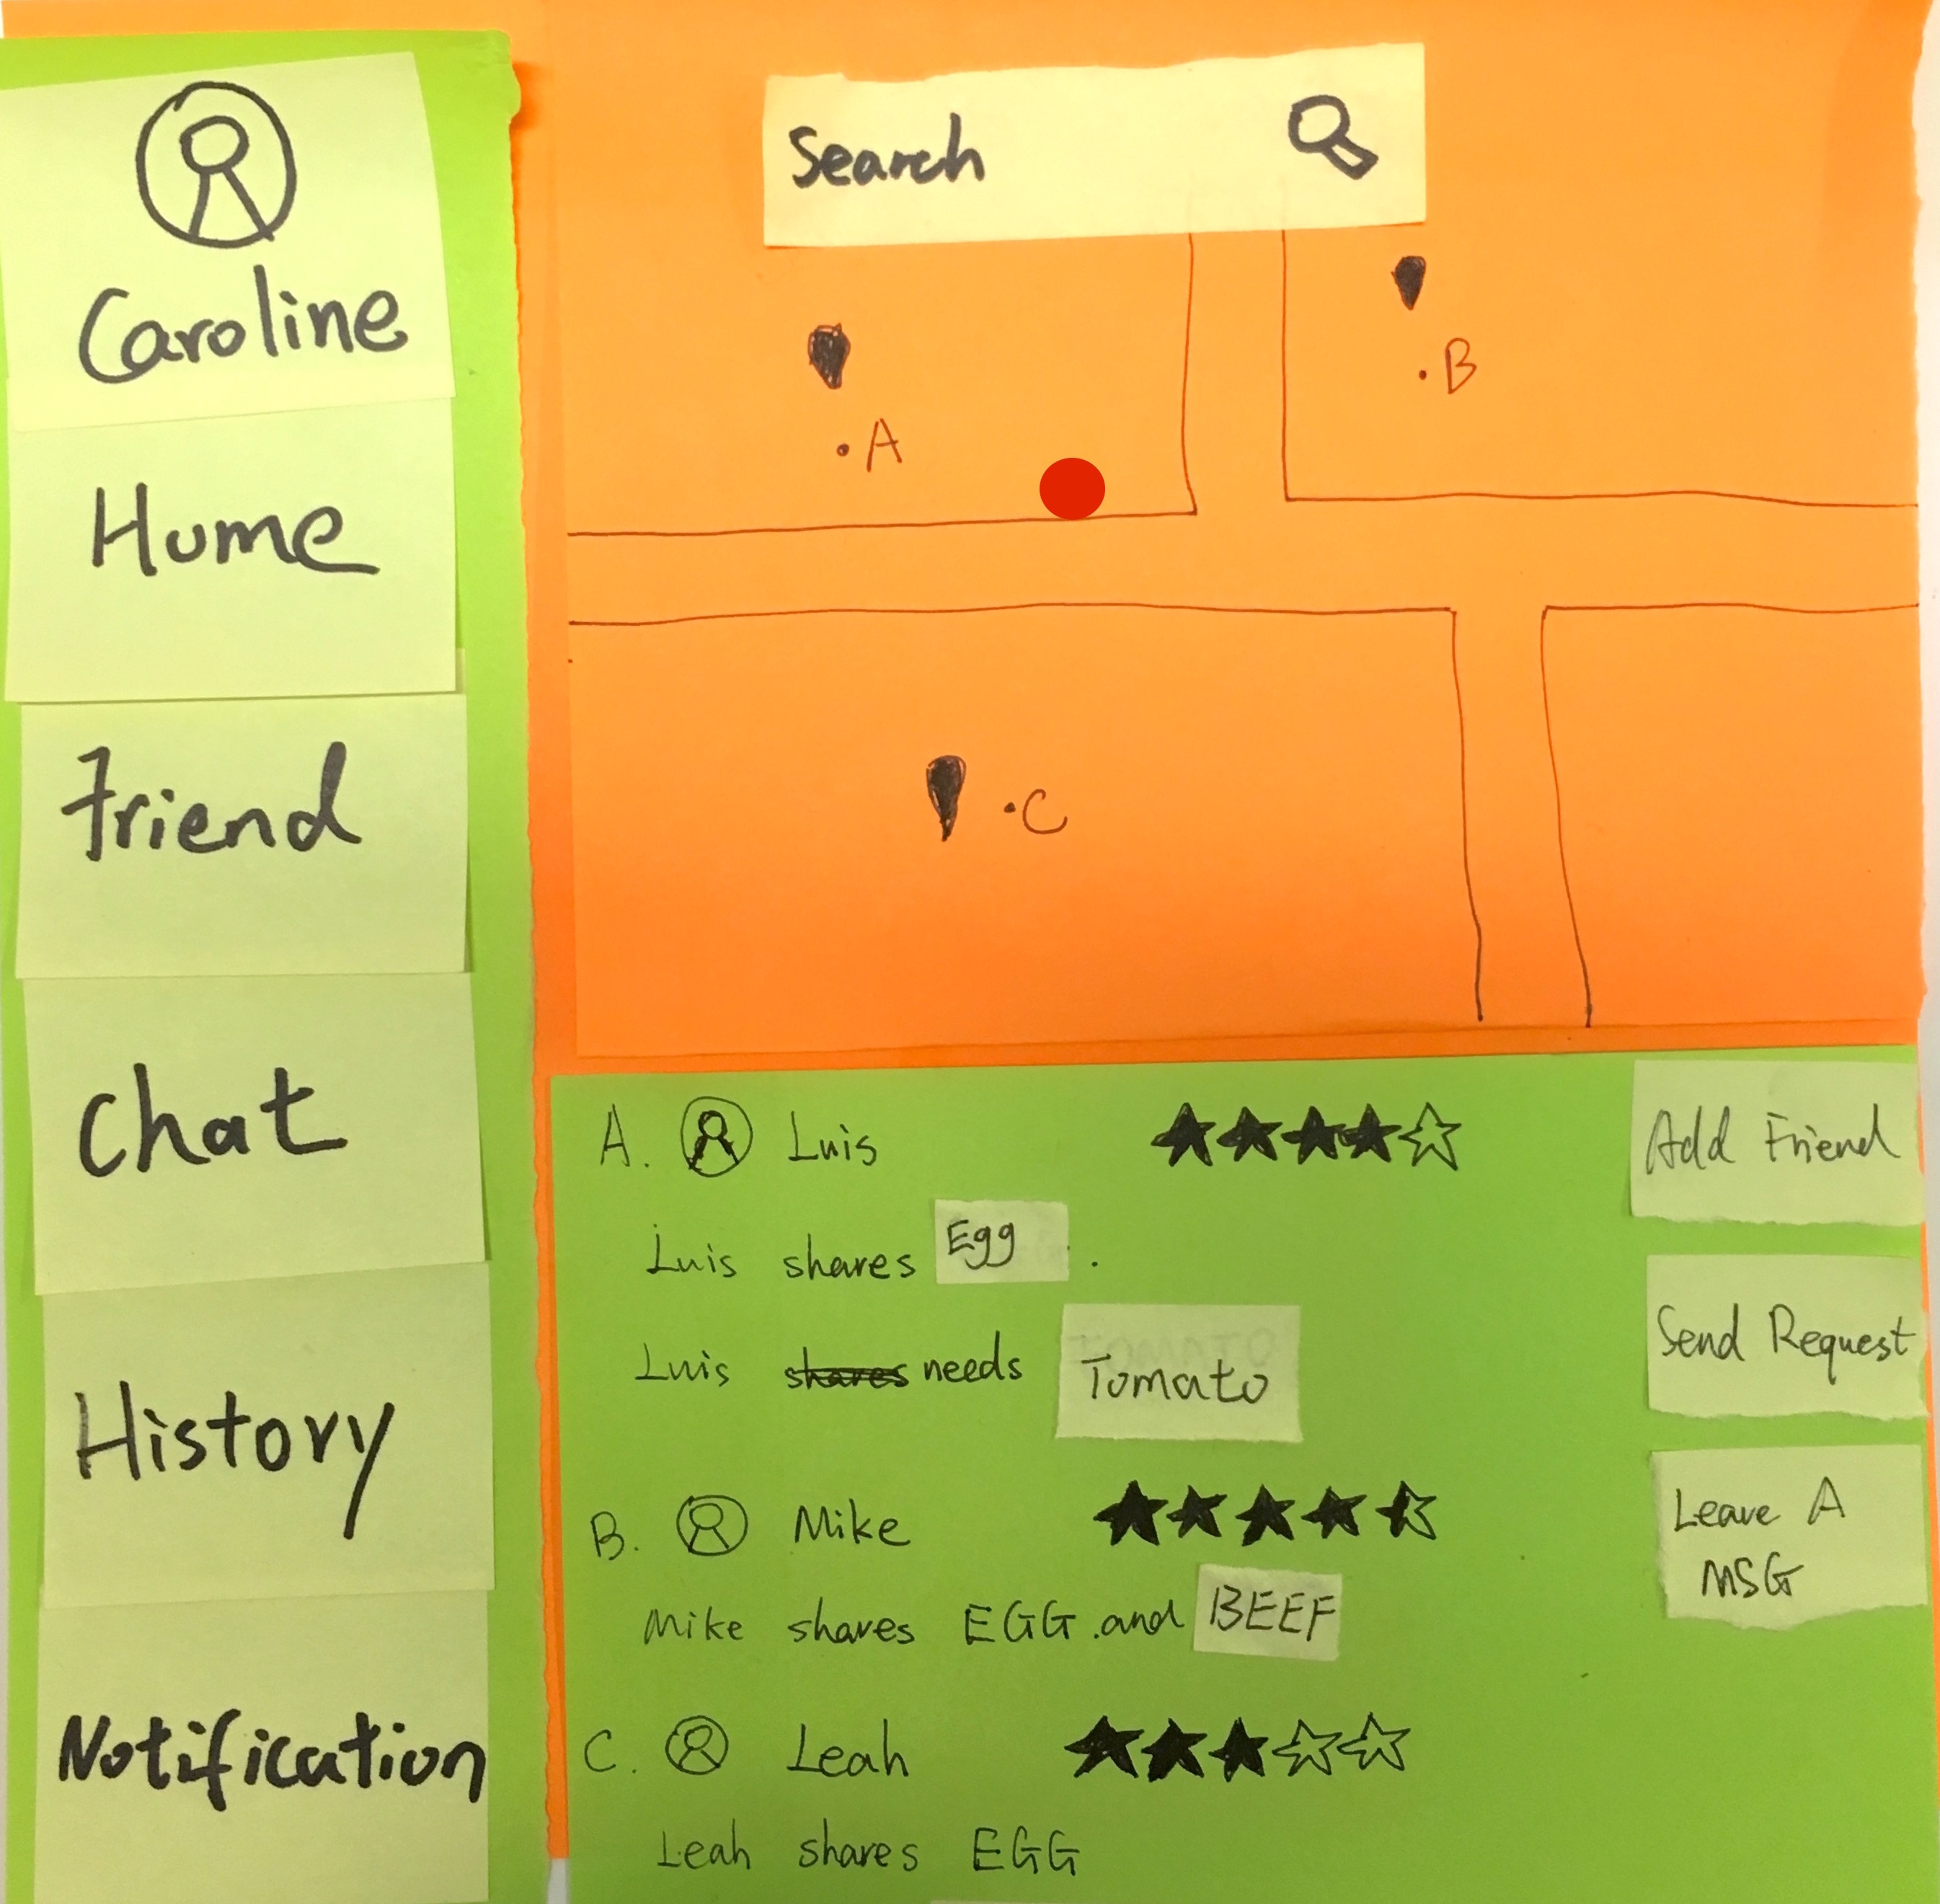 Caroline
Home
Friend
Chat
History
Notification
Search
A
B
C
A. Luis
Luis shares Egg .
Luis shares needs Tomato
B. Mike
Mike shares EGG and BEEF
C. Leah
Leah shares EGG
Add Friend
Send Request
Leave A
MSG